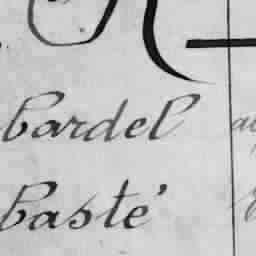 bardel
basté